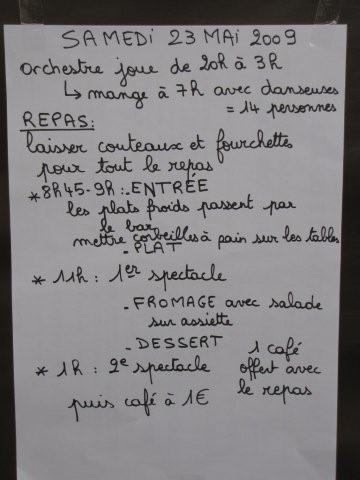 SAMEDI 23 MAI 2009
Orchestre joue de 20h à 3h
↳ mange à 7h avec danseuses
= 14 personnes
REPAS:
laisser couteaux et fourchettes
pour tout le repas
* 8h45-9h: - ENTRÉE
les plats froids passent par
le bar
mettre corbeilles à pain sur les tables
- PLAT
* 11h : 1er spectacle
- FROMAGE avec salade
sur assiette
- DESSERT
* 1h : 2e spectacle
puis café à 1€
1 café
offert avec
le repas